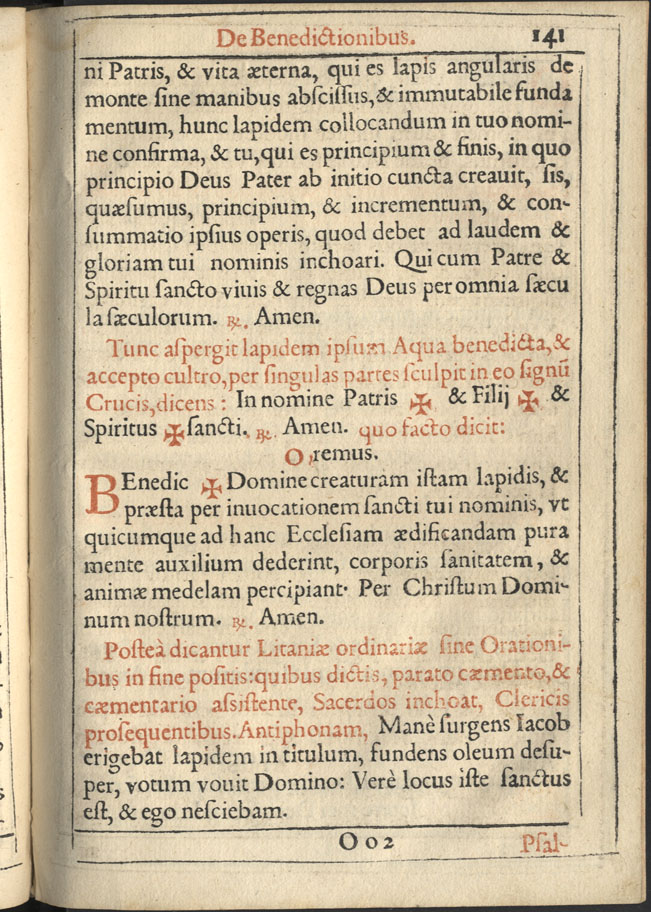 De Benedictionibus. 141
ni Patris, & vita æterna, qui es lapis angularis de
monte ſine manibus abſciſſus, & immutabile funda
mentum, hunc lapidem collocandum in tuo nomi-
ne confirma, & tu, qui es principium & finis, in quo
principio Deus Pater ab initio cuncta creauit, ſis,
quæſumus, principium, & incrementum, & con-
ſummatio ipſius operis, quod debet ad laudem &
gloriam tui nominis inchoari. Qui cum Patre &
Spiritu ſancto viuis & regnas Deus per omnia ſæcu
la ſæculorum. ℟. Amen.
Tunc aſpergit lapidem ipſum Aqua benedicta, &
accepto cultro, per ſingulas partes ſculpit in eo ſignū
Crucis, dicens: In nomine Patris ✠ & Filij ✠ &
Spiritus ✠ ſancti. ℟. Amen. quo facto dicit:
Oremus.
BEnedic ✠ Domine creaturam iſtam lapidis, &
præſta per inuocationem ſancti tui nominis, vt
quicumque ad hanc Eccleſiam ædificandam pura
mente auxilium dederint, corporis ſanitatem, &
animæ medelam percipiant. Per Chriſtum Domi-
num noſtrum. ℟. Amen.
Poſteà dicantur Litaniæ ordinariæ ſine Orationi-
bus in fine poſitis: quibus dictis, parato cæmento, &
cæmentario aſſiſtente, Sacerdos inchoat, Clericis
proſequentibus. Antiphonam, Manè ſurgens Iacob
erigebat lapidem in titulum, fundens oleum deſu-
per, votum vouit Domino: Verè locus iſte ſanctus
eſt, & ego neſciebam.
O o 2 Pſal-